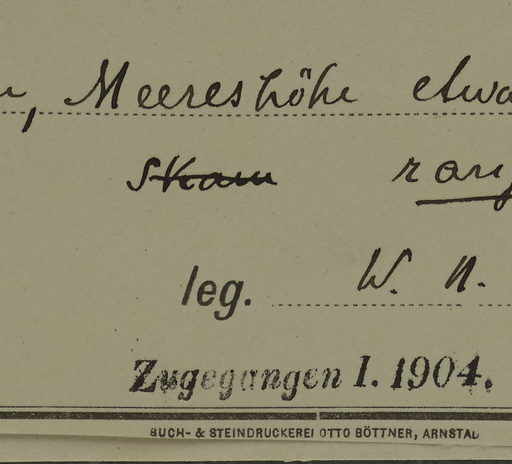 , Meereshöhe etwa
leg. W. N.
Zugegangen 1. 1904.
BUCH- & STEINDRUCKEREI OTTO BÖTTNER, ARNSTAD